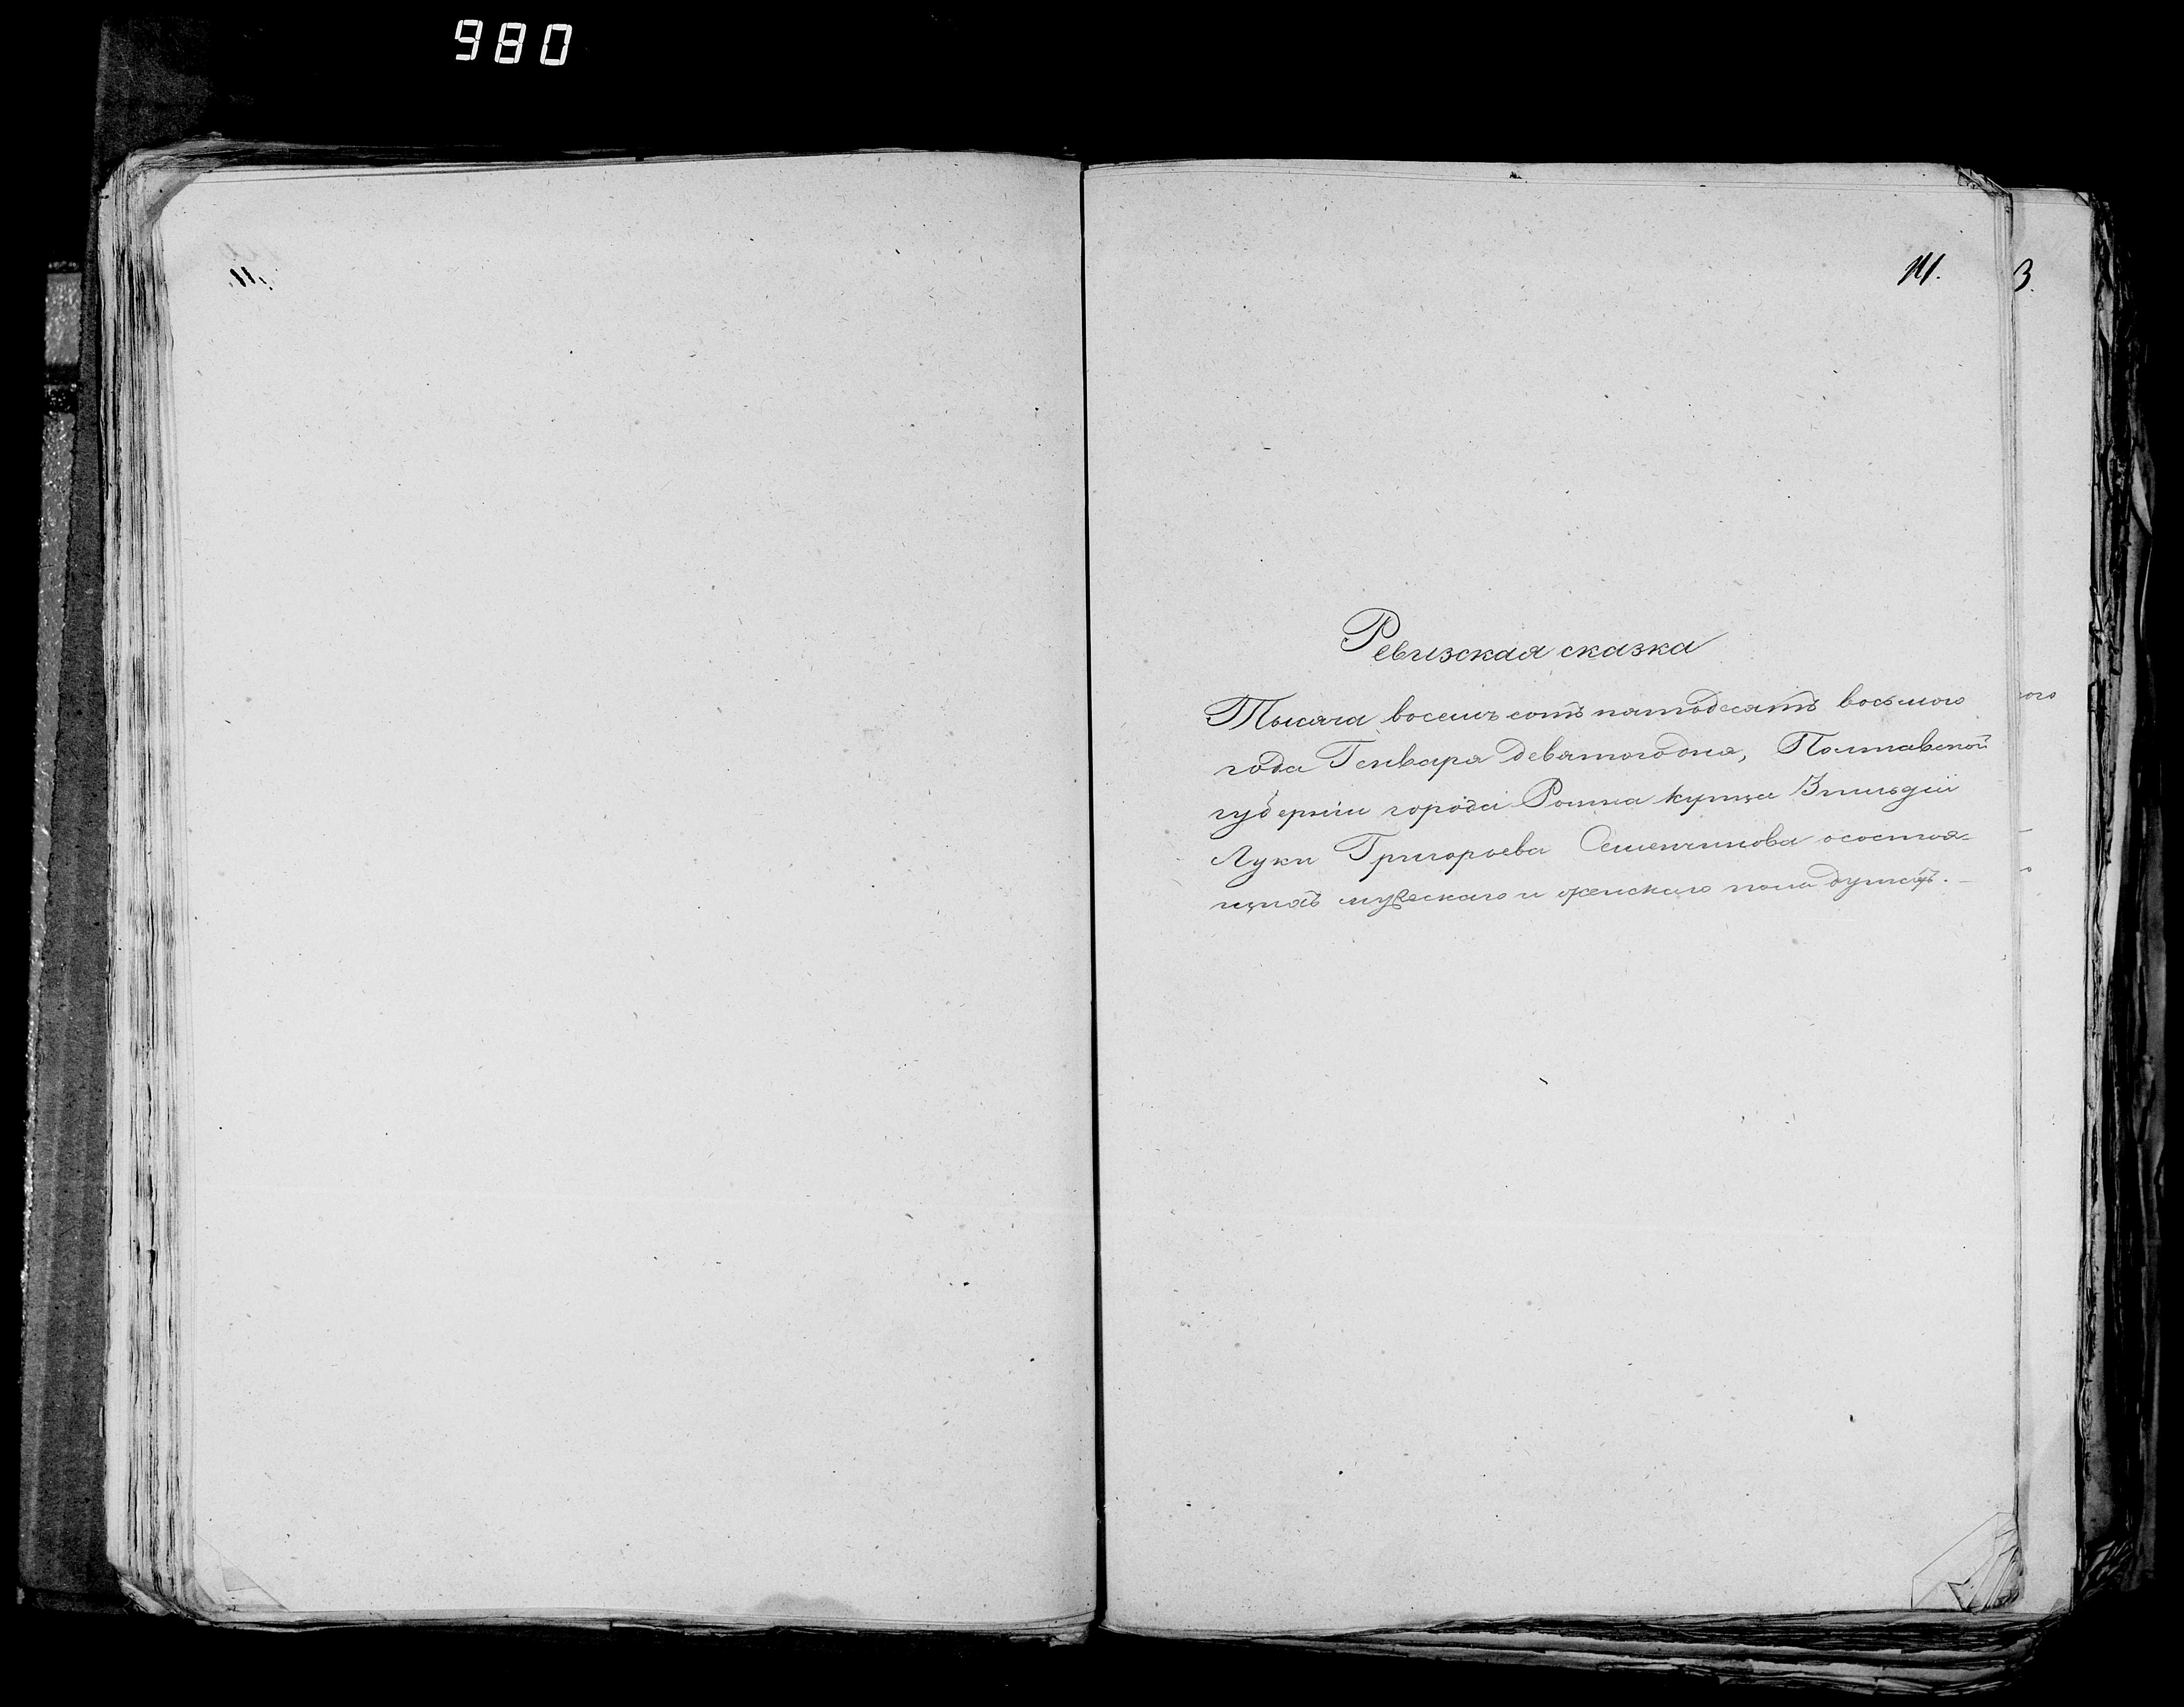 980
111.
3.
Ревизская сказка
ого
Тысяча восемь сотъ пятьдесятъ восьмого
года Генваря девятого дня, Полтавской
губерніи города Ромна купца 3й гильдіи
Луки Григорьева Семенчинова о состоя-
щихъ мужескаго и женскаго пола душахъ.